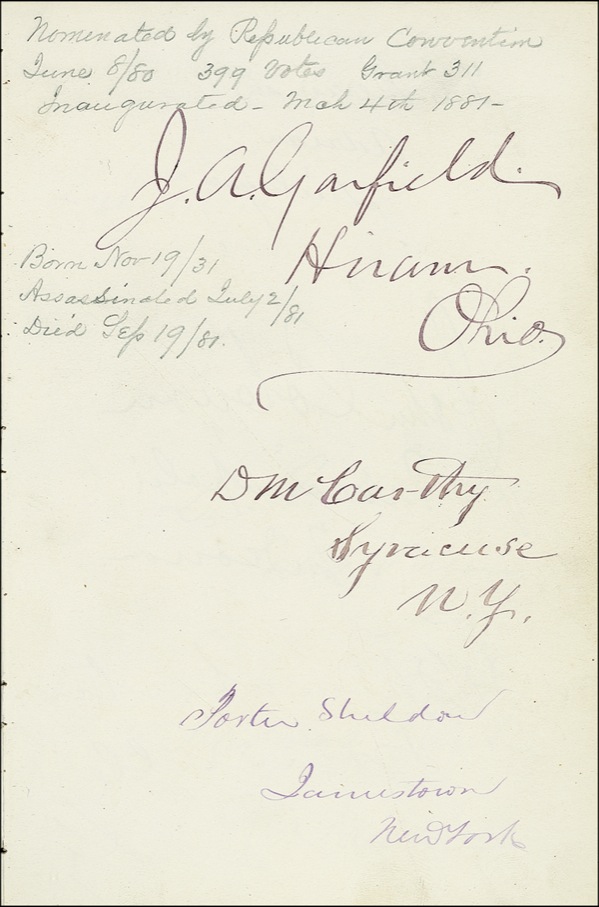 Nominated by Republican Convention
June 8/80 399 Votes Grant 311
Inaugurated - Mch 4th 1881 -
J. A. Garfield.
Hiram.
Ohio.
Born Nov 19/31
Assassinated July 2/81
Died Sep 19/81.
D McCarthy
Syracuse
N. Y.
Porter Sheldon
Jamestown
New York